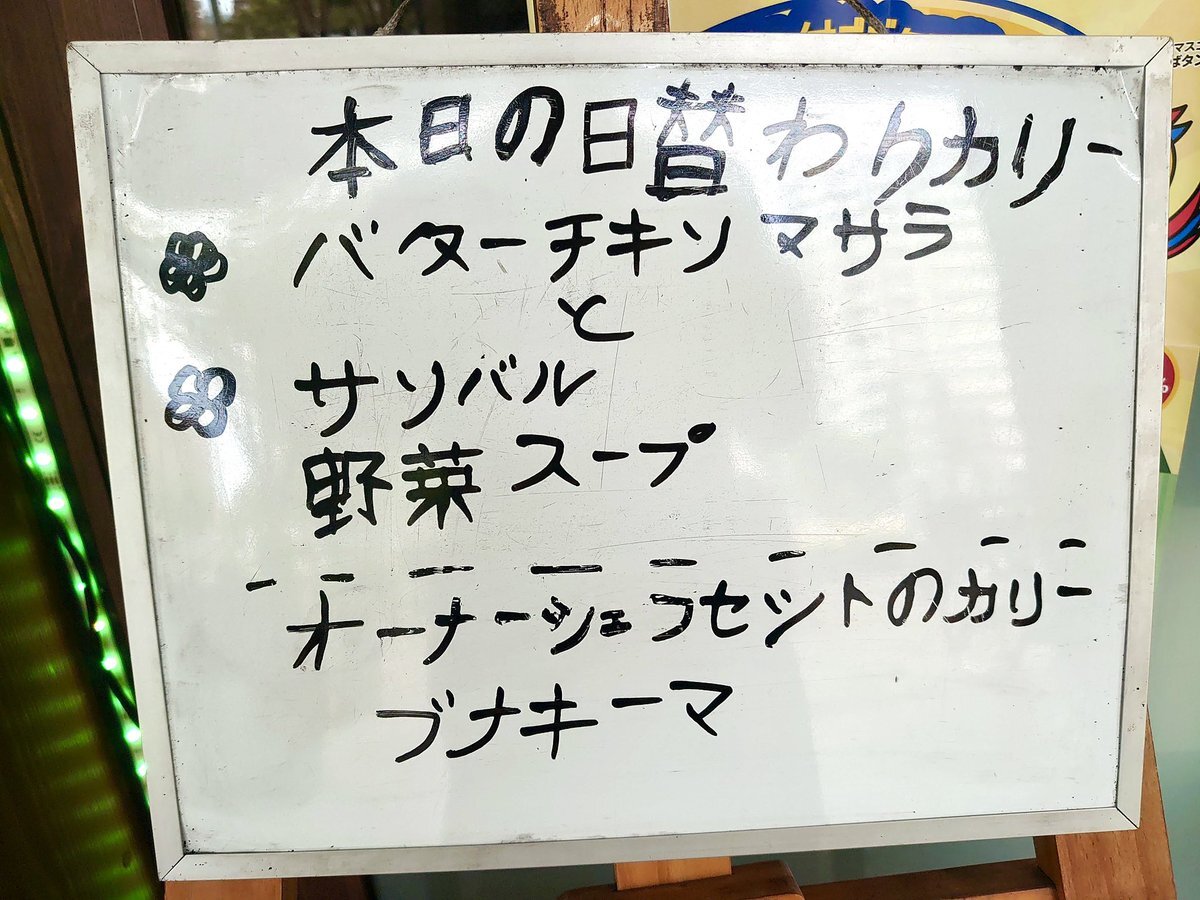 本日の日替わりカリー
バターチキンマサラ
と
サンバル
野菜スープ
オーナーシェフセットのカリー
ブナキーマ